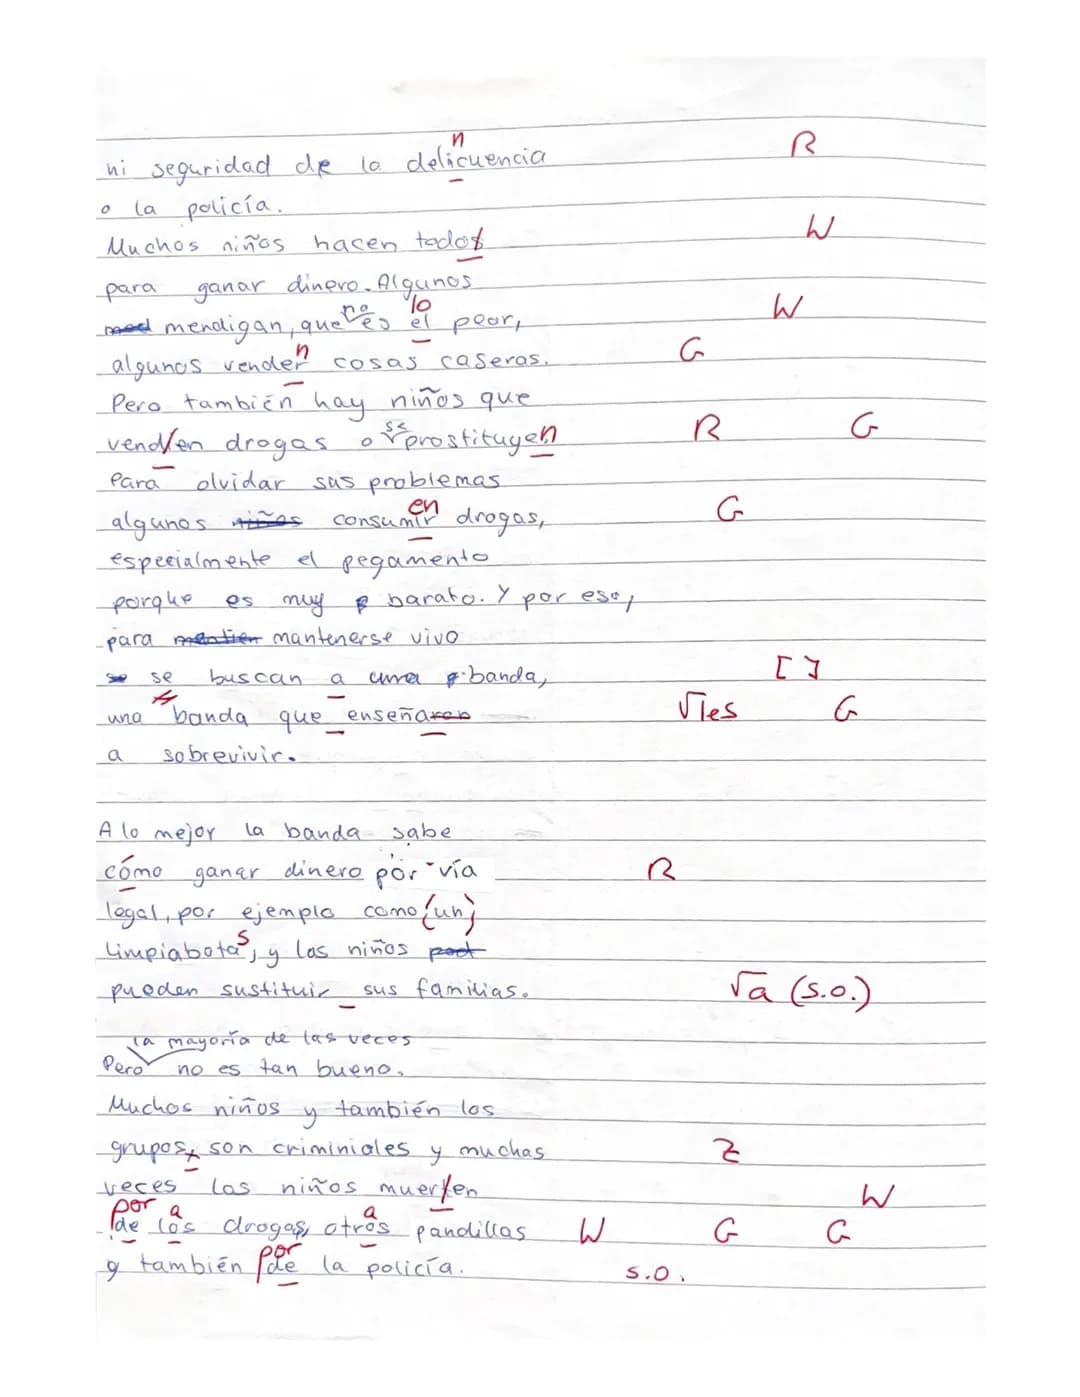 n R
ni seguridad de la delicuencia
o la policía.
Muchos niños hacen todos W
para ganar dinero. Algunos
no lo W
mendigan, que es el peor,
algunos vender n cosas caseras. G
Pero también hay niños que
se
venden drogas o prostituyen R G
Para olvidar sus problemas
en
algunos niños consumir drogas, G
especialmente el pegamento
porque es muy barato. Y por eso,
para mantenerse vivo
se se buscan a una banda, [ ]
una banda que enseñaron √les G
a sobrevivir.
A lo mejor la banda sabe
cómo ganar dinero por vía R
legal, por ejemplo como (un)
limpiabotas, y los niños
pueden sustituir sus familias. √a (s.o.)
la mayoría de las veces
Pero no es tan bueno.
Muchos niños y también los
grupos, son criminiales y muchas Z
veces los niños muerten W
por a a
de los drogas, otros pandillas W G G
por
y también de la policía. s.o.